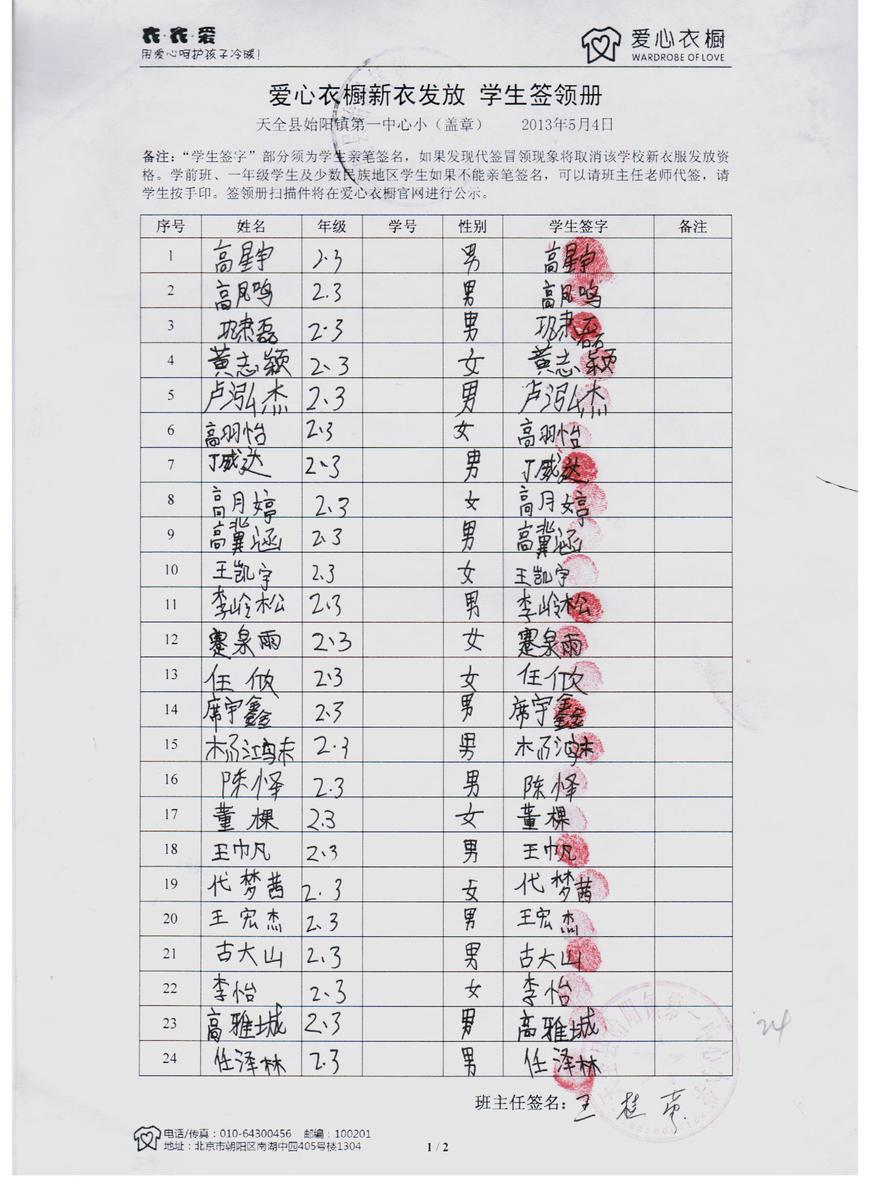 衣·衣·爱
用爱心呵护孩子冷暖！
爱心衣橱
WARDROBE OF LOVE
爱心衣橱新衣发放 学生签领册
天全县始阳镇第一中心小（盖章） 2013年5月4日
备注：“学生签字”部分须为学生亲笔签名，如果发现代签冒领现象将取消该学校新衣服发放资
格。学前班、一年级学生及少数民族地区学生如果不能亲笔签名，可以请班主任老师代签，请
学生按手印。签领册扫描件将在爱心衣橱官网进行公示。
序号 姓名 年级 学号 性别 学生签字 备注
1 高星宇 2.3 男 高星宇
2 高凤鸣 2.3 男 高凤鸣
3 2.3 男
4 黄志颖 2.3 女 黄志颖
5 卢泓杰 2.3 男 卢泓杰
6 高羽怡 2.3 女 高羽怡
7 丁威达 2.3 男 丁威达
8 高月婷 2.3 女 高月婷
9 高冀涵 2.3 男 高冀涵
10 王凯宇 2.3 女 王凯宇
11 李岭松 2.3 男 李岭松
12 蹇泉雨 2.3 女 蹇泉雨
13 任攸 2.3 女 任攸
14 席宇鑫 2.3 男 席宇鑫
15 杨鸿 2.3 男 杨鸿
16 陈怿 2.3 男 陈怿
17 董棵 2.3 女 董棵
18 王巾凡 2.3 男 王巾凡
19 代梦茜 2.3 女 代梦茜
20 王宏杰 2.3 男 王宏杰
21 古大山 2.3 男 古大山
22 李怡 2.3 女 李怡
23 高雅城 2.3 男 高雅城
24 任泽林 2.3 男 任泽林
24
班主任签名：王桂
电话/传真：010-64300456 邮编：100201
地址：北京市朝阳区南湖中园405号楼1304
1 / 2